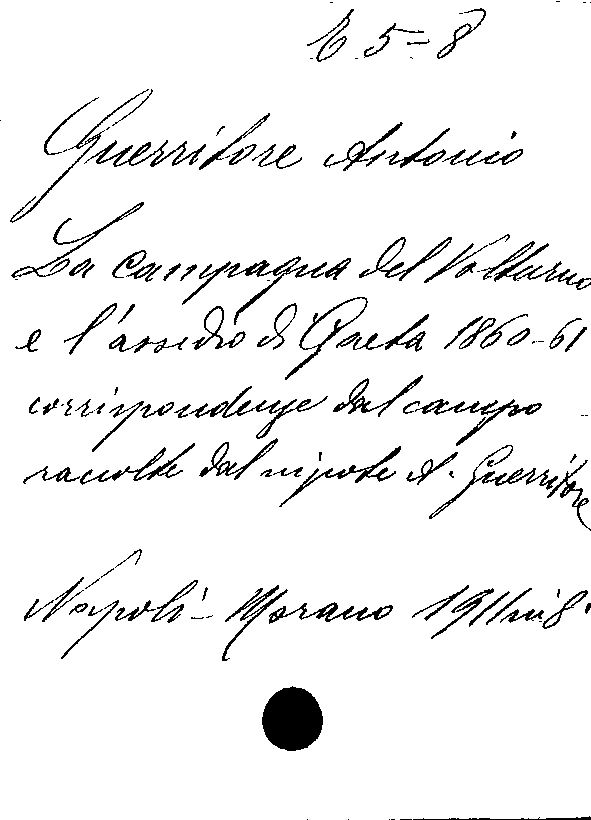 E 5 - 8
Guerritore Antonio
La campagna del Volturno
e l'assedio di Gaeta 1860-61
corrispondenze dal campo
raccolte dal nipote A. Guerritore
Napoli - Morano 1911 in 8°